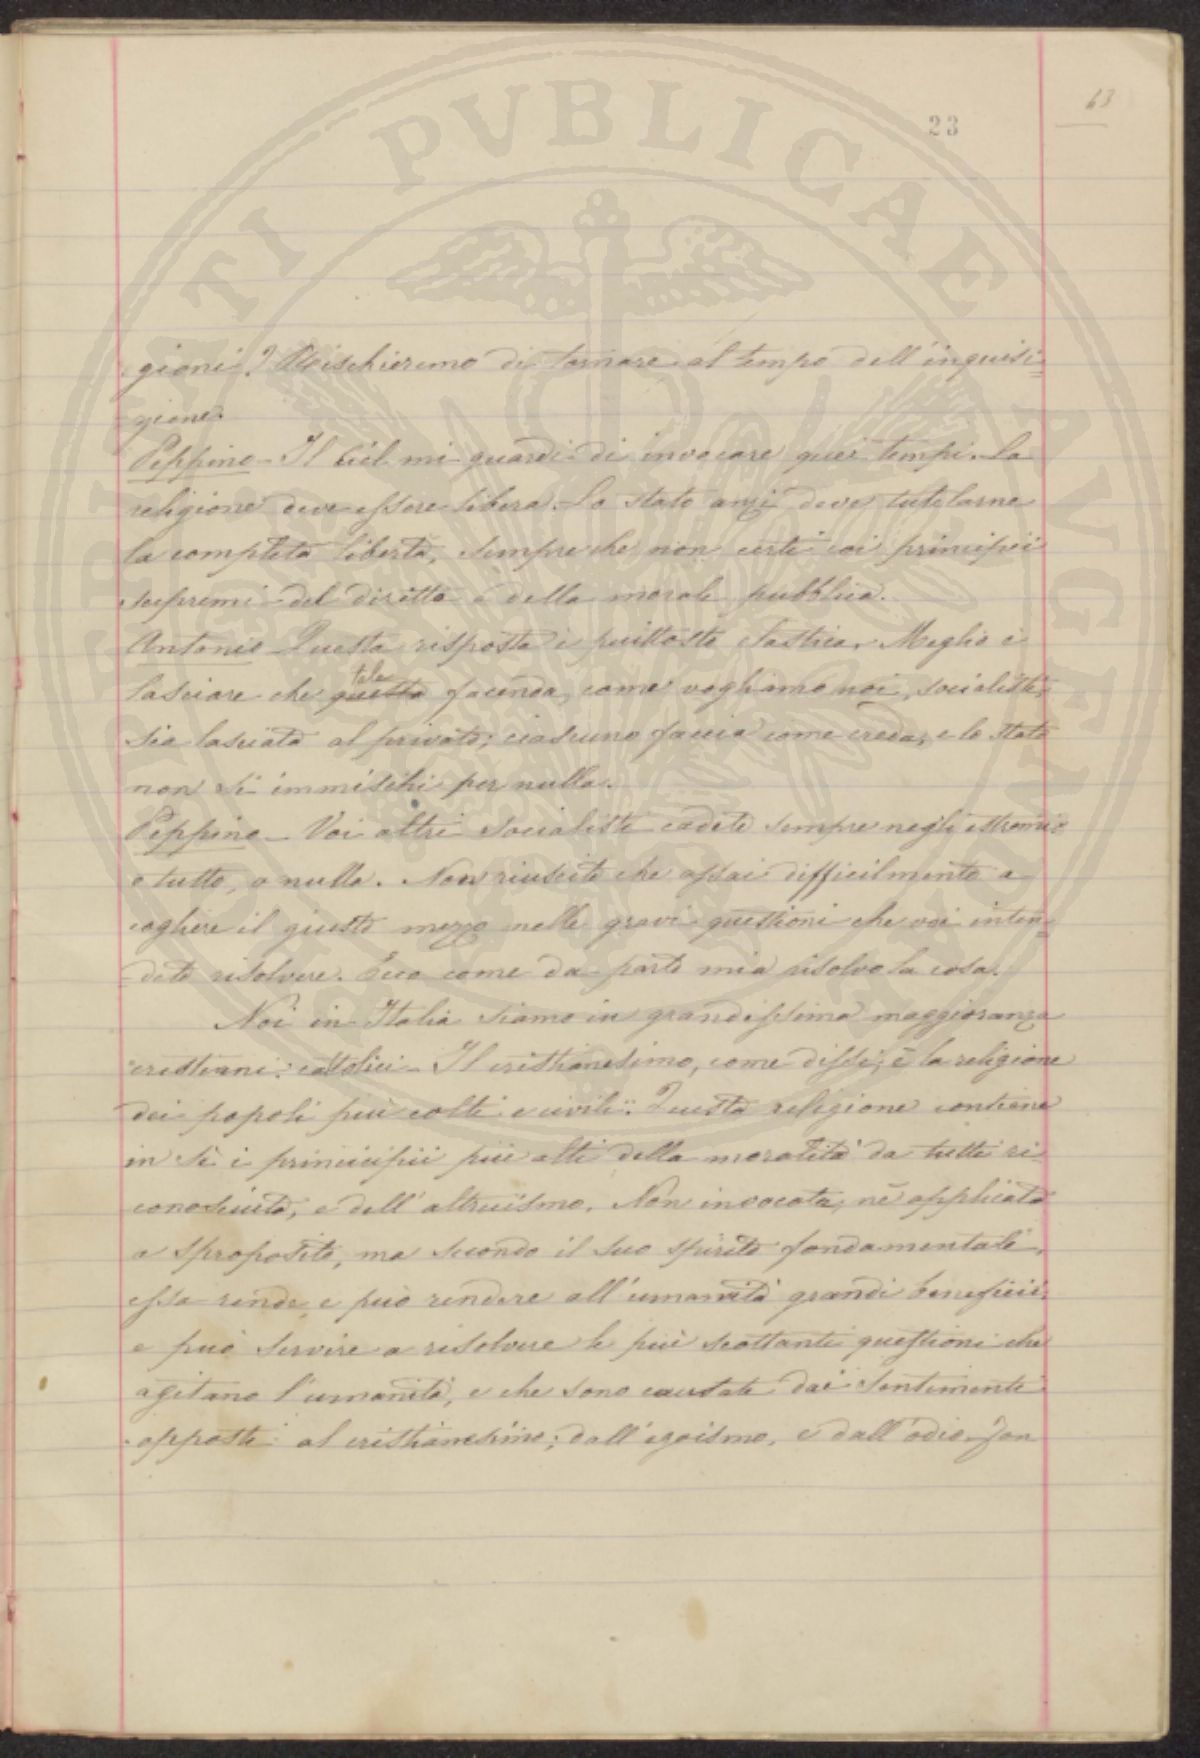 63
23
gioni? Rischieremo di tornare al tempo dell'inquisi=
zione.
Peppino - Il Ciel mi guardi di invocare quei tempi. La
religione deve essere libera. Lo stato anzi deve tutelarne
la completa libertà, sempre che non urti coi principii
supremi del diritto e della morale pubblica.
Antonio - Questa risposta è piuttosto elastica. Meglio è
tale
lasciare che questa facenda, come vogliamo noi, socialisti,
sia lasciata al privato; ciascuno faccia come creda, e lo Stato
non si immischi per nulla.
Peppino - Voi altri socialisti cadete sempre negli estremi:
o tutto, o nulla. Non riuscite che assai difficilmente a
cogliere il giusto mezzo nelle gravi questioni che voi inten=
dete risolvere. Ecco come da parte mia risolvo la cosa.
Noi in Italia siamo in grandissima maggioranza
cristiani: cattolici - Il cristianesimo, come dissi, è la religione
dei popoli più colti e civili. Questa religione contiene
in sè i principii più alti della moralità da tutti ri=
conosciuta, e dell'altruismo. Non invocata, nè applicata
a sproposito, ma secondo il suo spirito fondamentale,
essa rende e può rendere all'umanità grandi beneficii,
e può servire a risolvere le più scottanti questioni che
agitano l'umanità, e che sono causate dai sentimenti
opposti al cristianesimo; dall'egoismo, e dall'odio. Jon
PVBLICAE